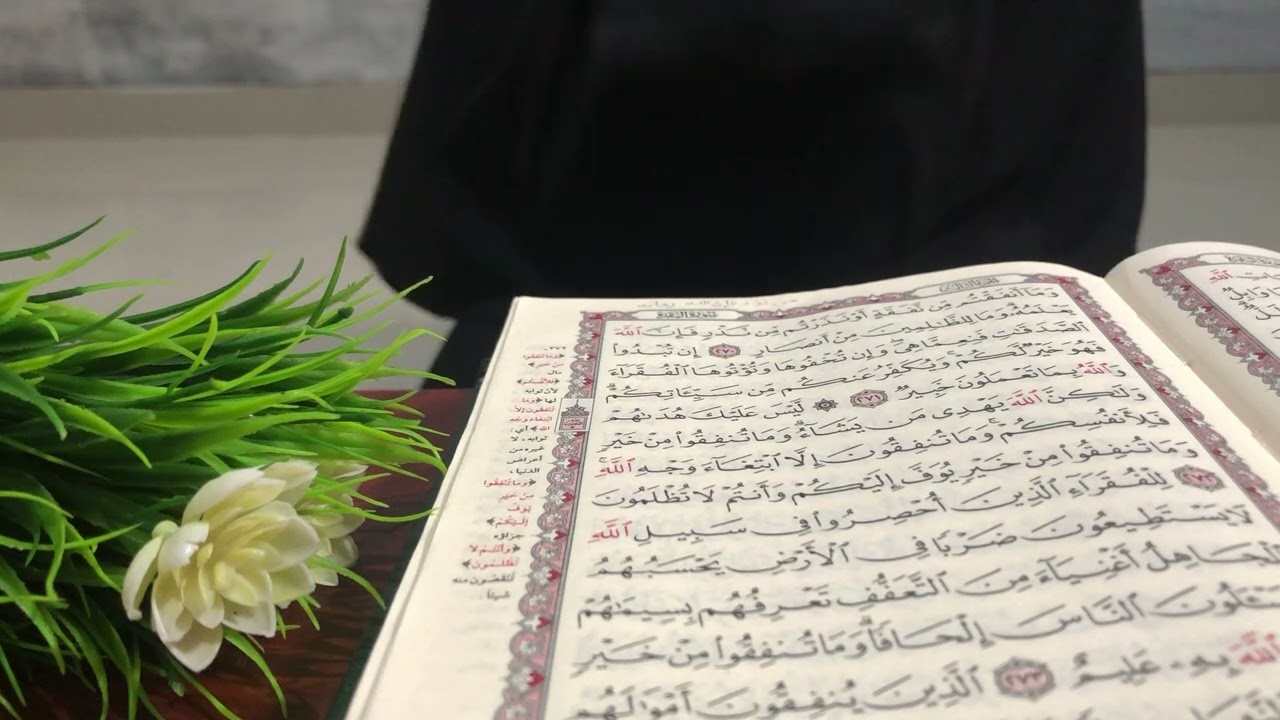 سورة البقرة
وَمَآ أَنفَقْتُم مِّن نَّفَقَةٍ أَوْ نَذَرْتُم مِّن نَّذْرٍ فَإِنَّ ٱللَّهَ
يَعْلَمُهُۥ وَمَا لِلظَّٰلِمِينَ مِنْ أَنصَارٍ ٢٧٠ إِن تُبْدُوا۟
ٱلصَّدَقَٰتِ فَنِعِمَّا هِىَ وَإِن تُخْفُوهَا وَتُؤْتُوهَا ٱلْفُقَرَآءَ
فَهُوَ خَيْرٌ لَّكُمْ وَيُكَفِّرُ عَنكُم مِّن سَيِّـَٔاتِكُمْ
وَٱللَّهُ بِمَا تَعْمَلُونَ خَبِيرٌ ٢٧١ ۞ لَّيْسَ عَلَيْكَ هُدَىٰهُمْ
وَلَٰكِنَّ ٱللَّهَ يَهْدِى مَن يَشَآءُ وَمَا تُنفِقُوا۟ مِنْ خَيْرٍ
فَلِأَنفُسِكُمْ وَمَا تُنفِقُونَ إِلَّا ٱبْتِغَآءَ وَجْهِ ٱللَّهِ
وَمَا تُنفِقُوا۟ مِنْ خَيْرٍ يُوَفَّ إِلَيْكُمْ وَأَنتُمْ لَا تُظْلَمُونَ
٢٧٢ لِلْفُقَرَآءِ ٱلَّذِينَ أُحْصِرُوا۟ فِى سَبِيلِ ٱللَّهِ
لَا يَسْتَطِيعُونَ ضَرْبًا فِى ٱلْأَرْضِ يَحْسَبُهُمُ
ٱلْجَاهِلُ أَغْنِيَآءَ مِنَ ٱلتَّعَفُّفِ تَعْرِفُهُم بِسِيمَٰهُمْ
ٱلنَّاسَ إِلْحَافًا وَمَا تُنفِقُوا۟ مِنْ خَيْرٍ
ٱللَّهَ بِهِۦ عَلِيمٌ ٢٧٣ ٱلَّذِينَ يُنفِقُونَ أَمْوَٰلَهُم
لها ﴿وما
تنفقون إلا
ابتغاء وجه
الله﴾ أي
ثوابه، لا
غيره من
أعراض
الدنيا،
﴿وما تنفقوا
من خير
يوف
إليكم﴾
جزاؤه
﴿وأنتم لا
تظلمون﴾
تنقصون منه
شيئا.